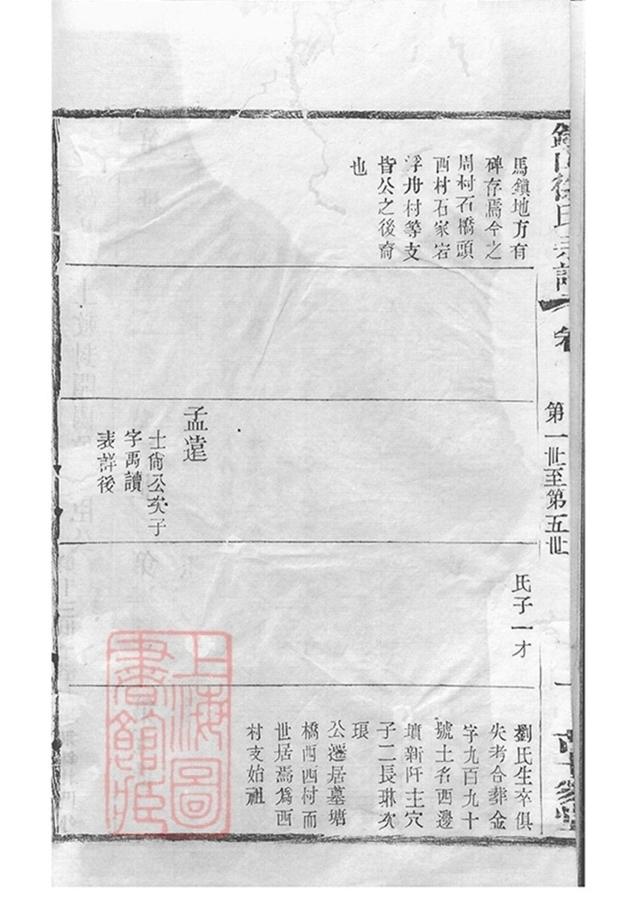 馬鎮地方有
碑存焉今之
周村石橋頭
西村石家宕
浮舟村等支
皆公之後裔
也
孟
士尙公次子
字禹讀
表詳後
氏子一才
劉氏生卒俱
失考合葬金
字九百九十
號土名西邊
墳新阡主穴
子二長琳次
琅
公遷居墓塘
橋西西村而
世居焉爲西
村支始祖
氏宗譜
卷
第一世至第五世
一
上海圖
書館藏